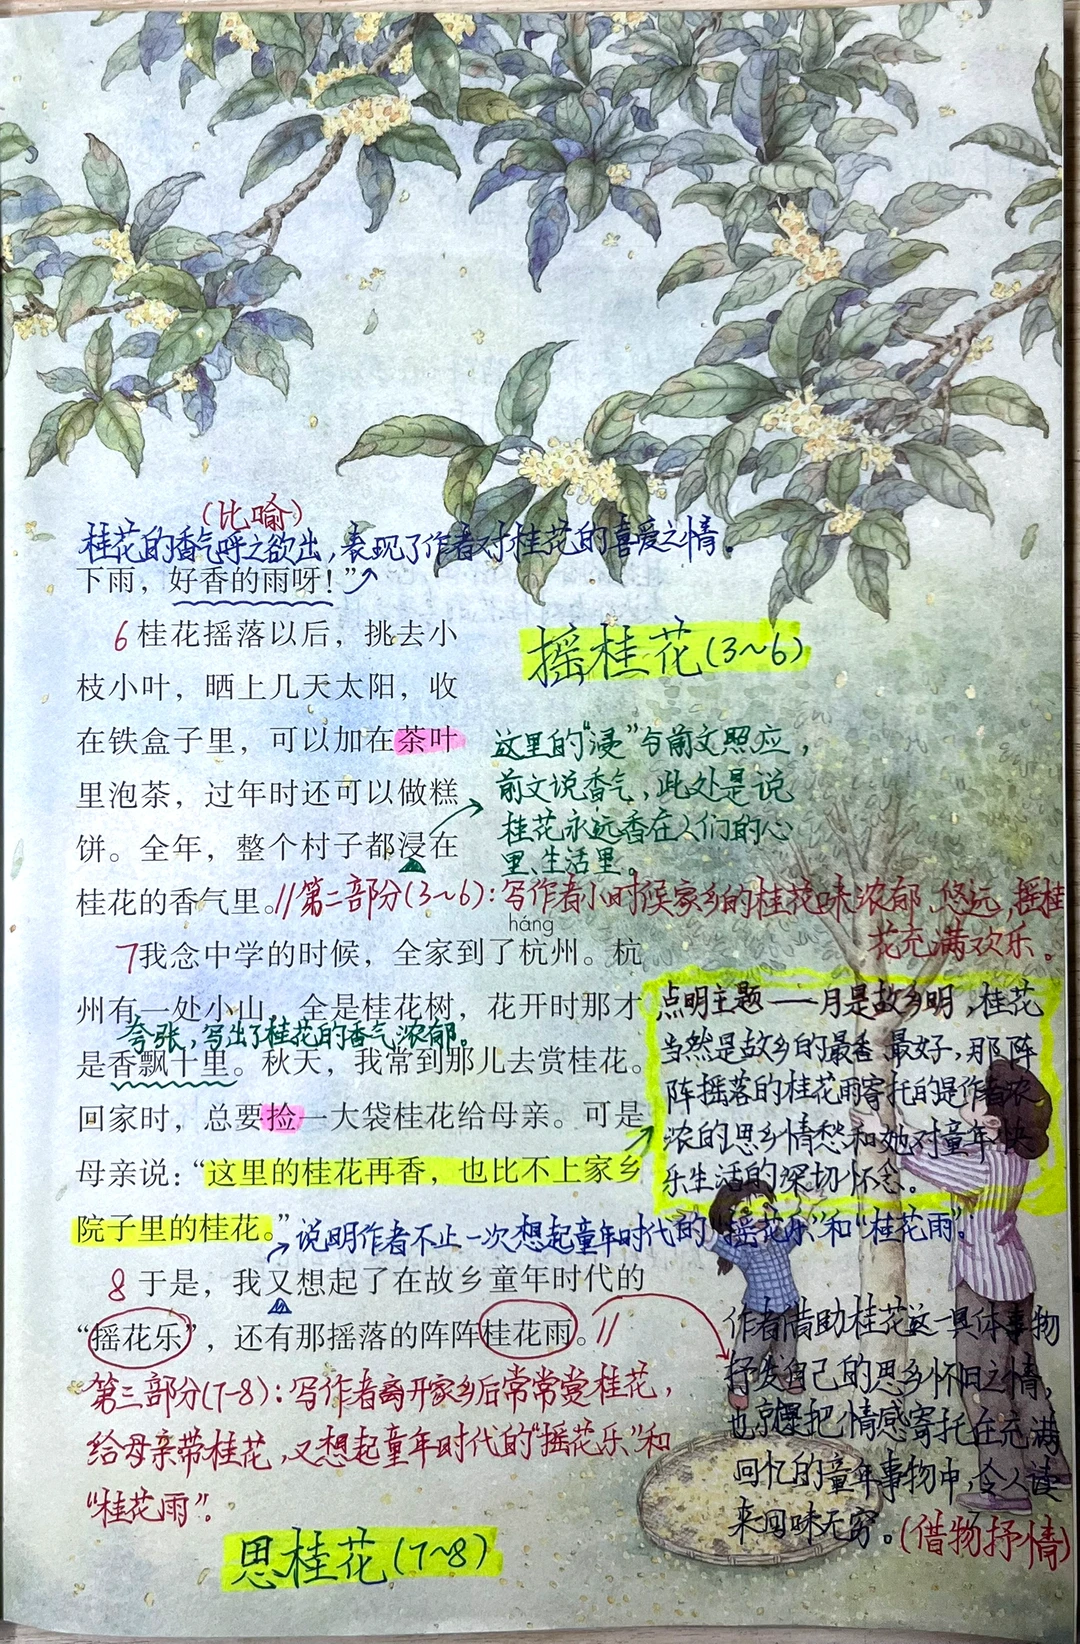 (比喻)
桂花的香气呼之欲出，表现了作者对桂花的喜爱之情。
下雨，好香的雨呀！”
摇桂花(3~6)
6 桂花摇落以后，挑去小
枝小叶，晒上几天太阳，收
在铁盒子里，可以加在茶叶
里泡茶，过年时还可以做糕
饼。全年，整个村子都浸在
桂花的香气里。//第二部分(3~6)：写作者小时候家乡的桂花味浓郁、悠远，摇桂
花充满欢乐。
这里的“浸”与前文照应，
前文说香气，此处是说
桂花永远香在人们的心
里、生活里。
háng
7我念中学的时候，全家到了杭州。杭
州有一处小山，全是桂花树，花开时那才
夸张，写出了桂花的香气浓郁。
是香飘十里。秋天，我常到那儿去赏桂花。
回家时，总要捡一大袋桂花给母亲。可是
母亲说：“这里的桂花再香，也比不上家乡
院子里的桂花。”
点明主题——月是故乡明，桂花
当然是故乡的最香、最好，那阵
阵摇落的桂花雨寄托的是作者浓
浓的思乡情愁和她对童年快
乐生活的深切怀念。
说明作者不止一次想起童年时代的“摇花乐”和“桂花雨”。
8 于是，我又想起了在故乡童年时代的
“摇花乐”，还有那摇落的阵阵桂花雨。//
第三部分(7-8)：写作者离开家乡后常常赏桂花，
给母亲带桂花，又想起童年时代的“摇花乐”和
“桂花雨”。
思桂花(7~8)
作者借助桂花这一具体事物
抒发自己的思乡怀旧之情，
也就是把情感寄托在充满
回忆的童年事物中，令人读
来回味无穷。(借物抒情)